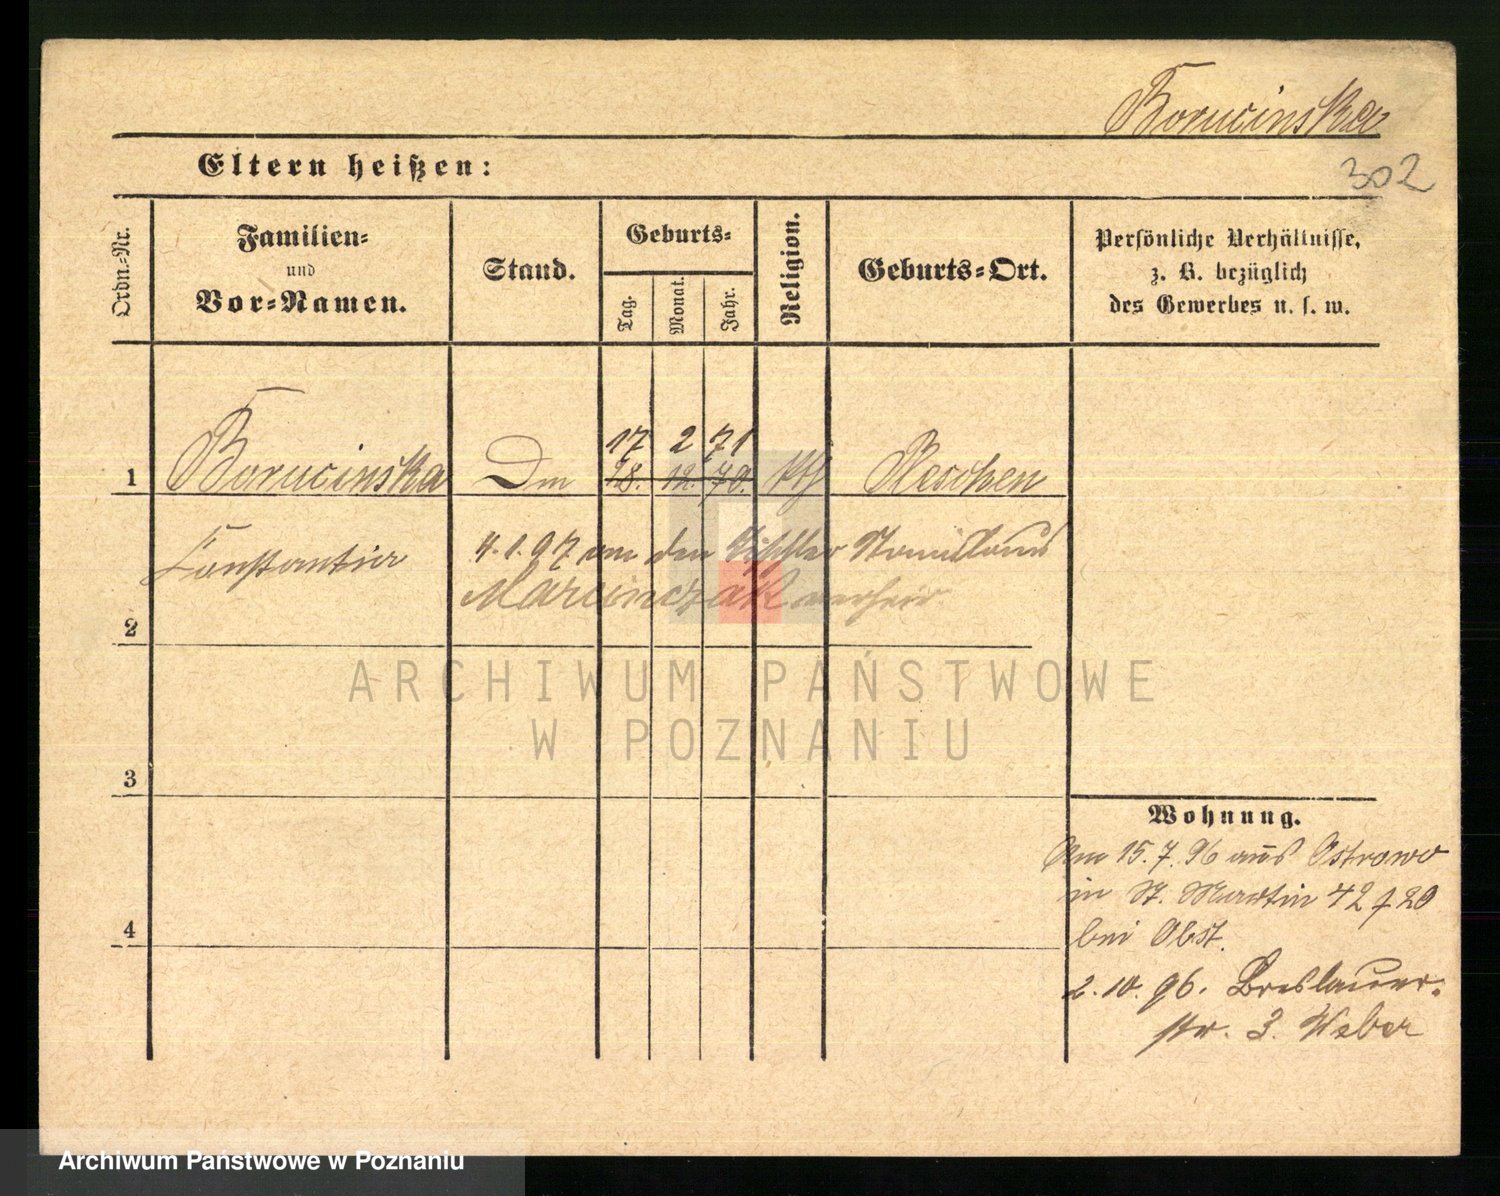 Borucinska
302
Eltern heißen:
Ordn.-Nr.
Familien-
und
Vor-Namen.
Stand.
Geburts-
Tag.
Monat.
Jahr.
Religion.
Geburts-Ort.
Persönliche Verhältnisse,
z. B. bezüglich
des Gewerbes u. s. w.
17 2 71
1 Borucinska Dm 18. 12. 70. kth Pleschen
Constantia 4.1.97 an den Tischler Stanislaus
Marcinczak verheir.
2
ARCHIWUM PAŃSTWOWE
W POZNANIU
3
Wohnung.
Am 15.7.96 aus Ostrowo
in St. Martin 42
bei Obst.
4
2.10.96. Breslauer-
str. 3. Weber
Archiwum Państwowe w Poznaniu